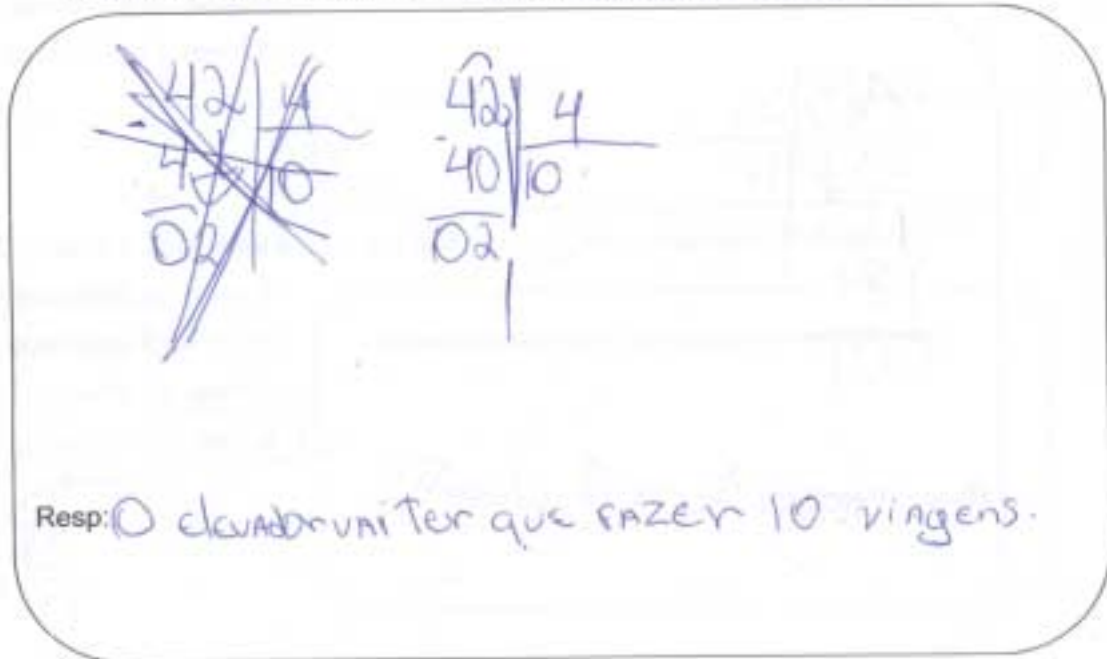 42 4
- 4 10
02
42 4
- 40 10
02
Resp: O elevador vai ter que fAZer 10 viagens.